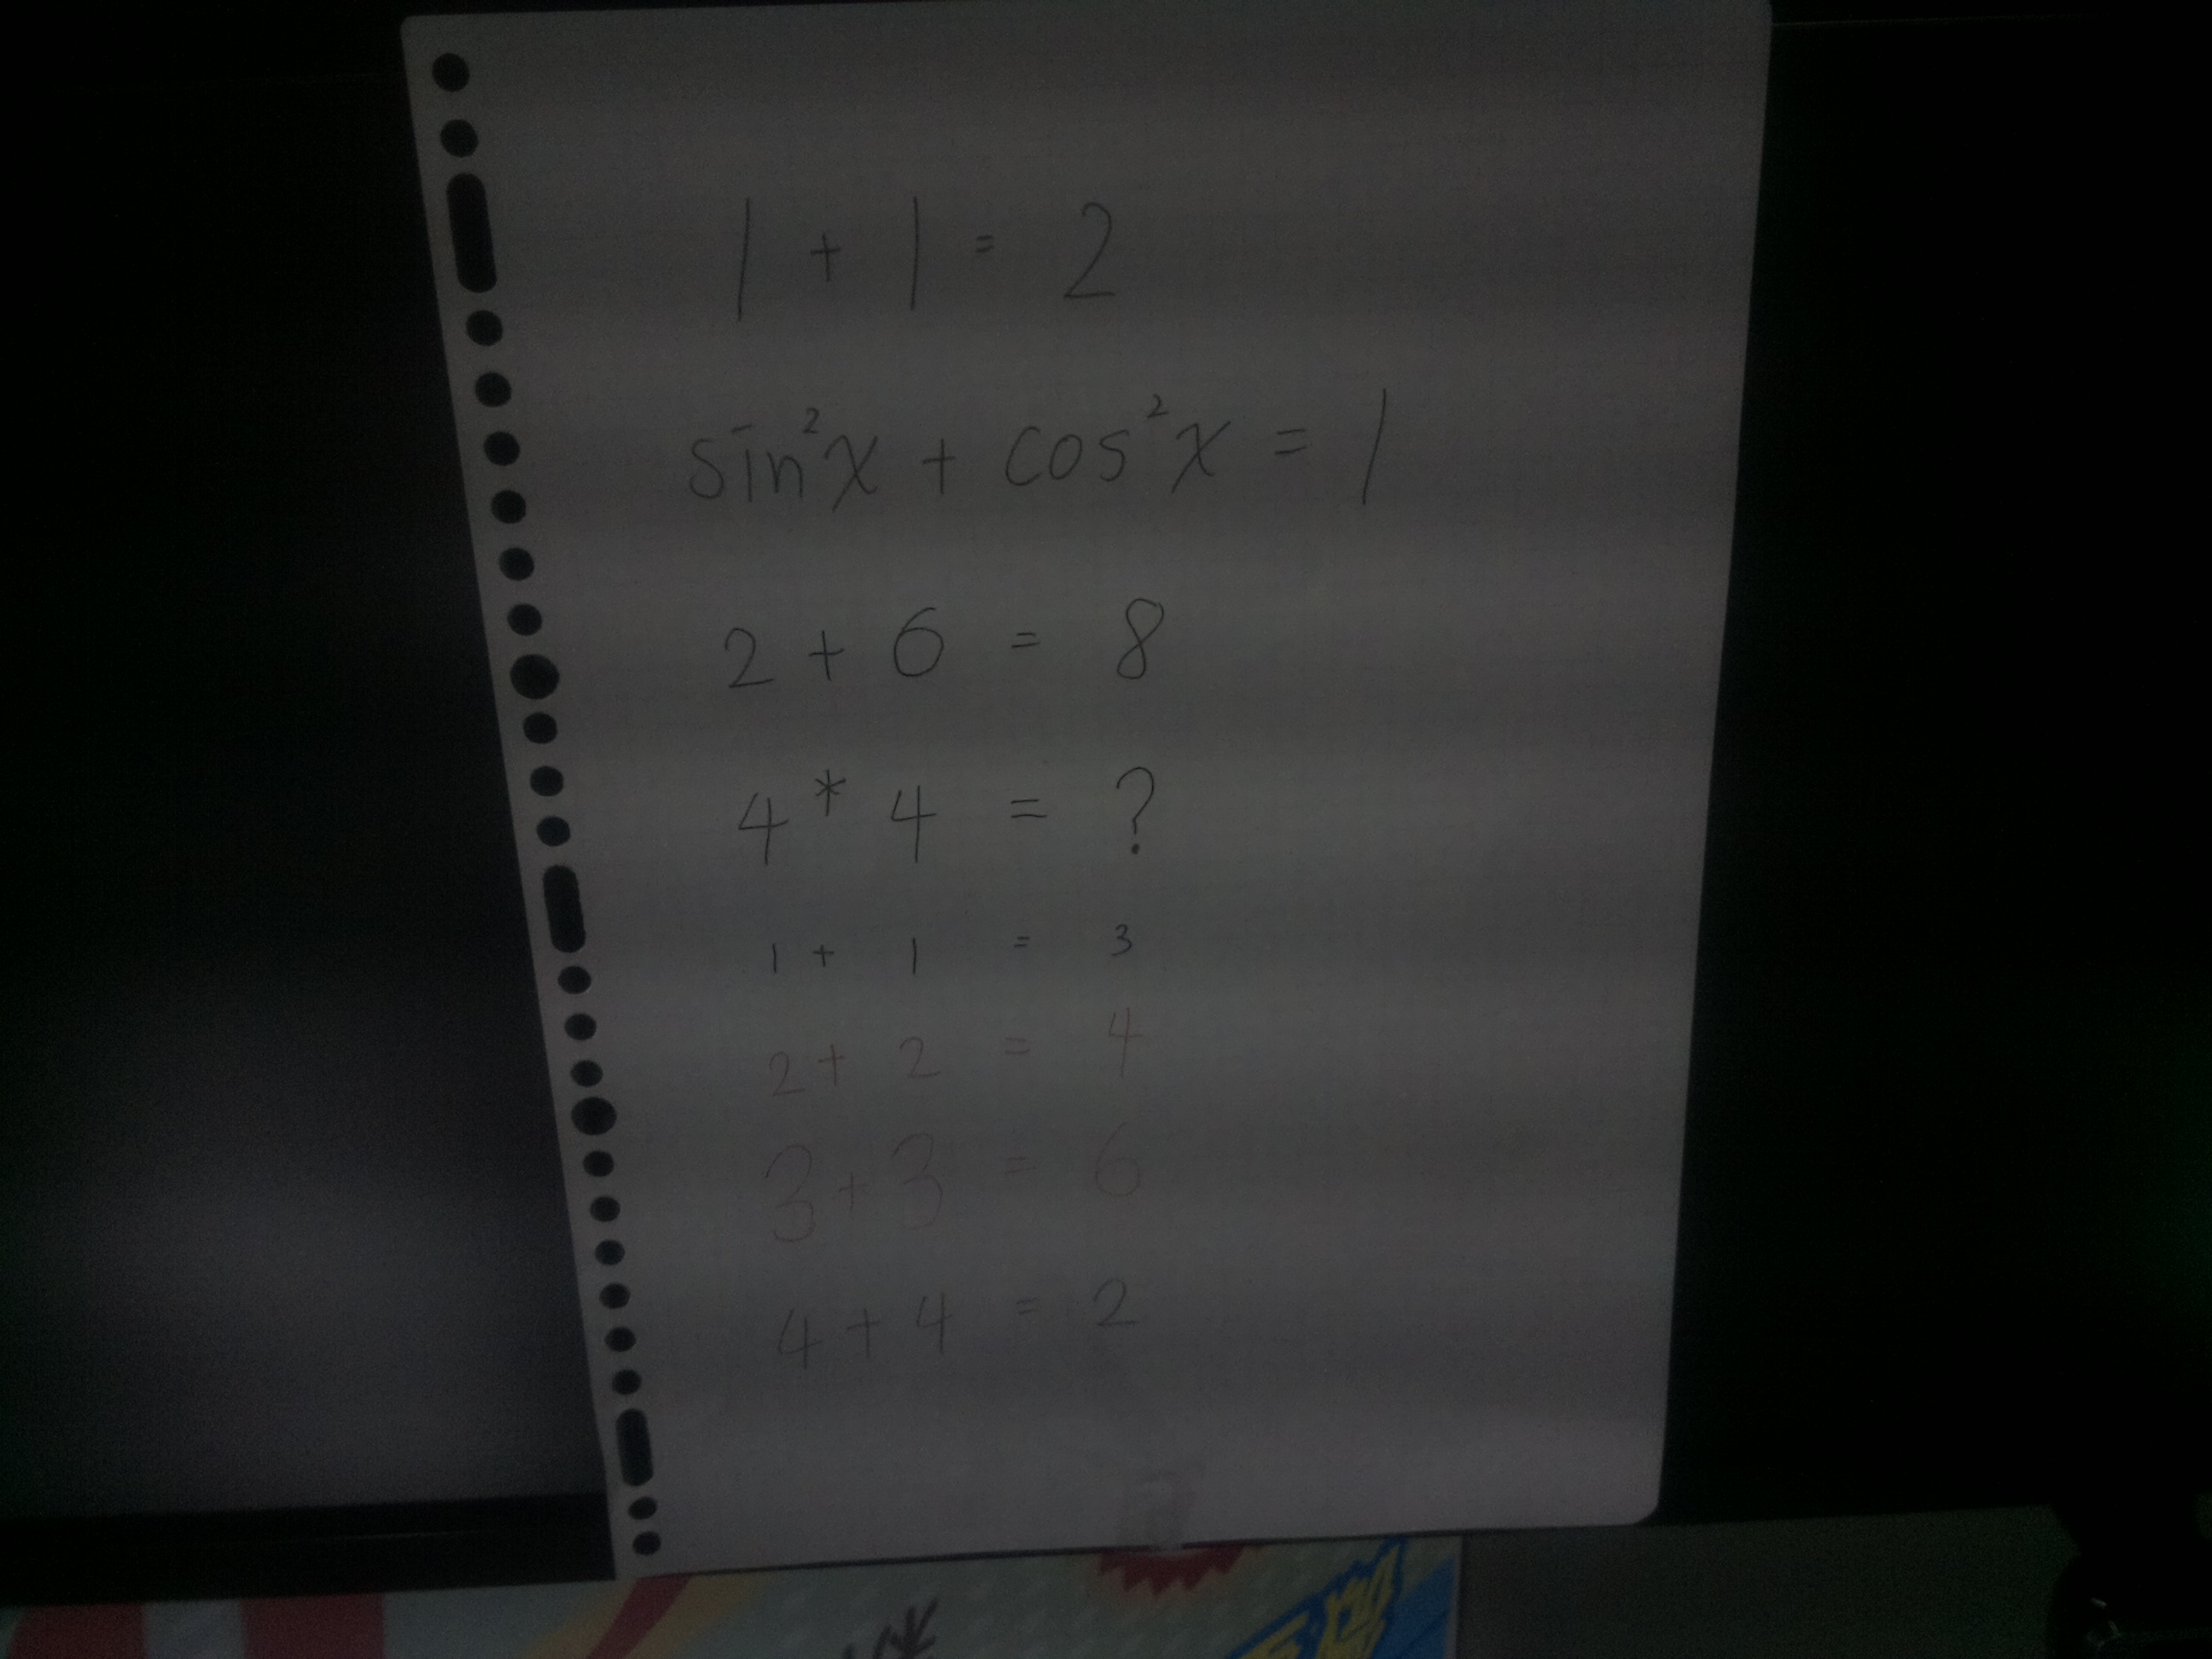 1 + 1 = 2
sin²x + cos²x = 1
2 + 6 = 8
4 * 4 = ?
1 + 1 = 3
2 + 2 = 4
3 + 3 = 6
4 + 4 = 2